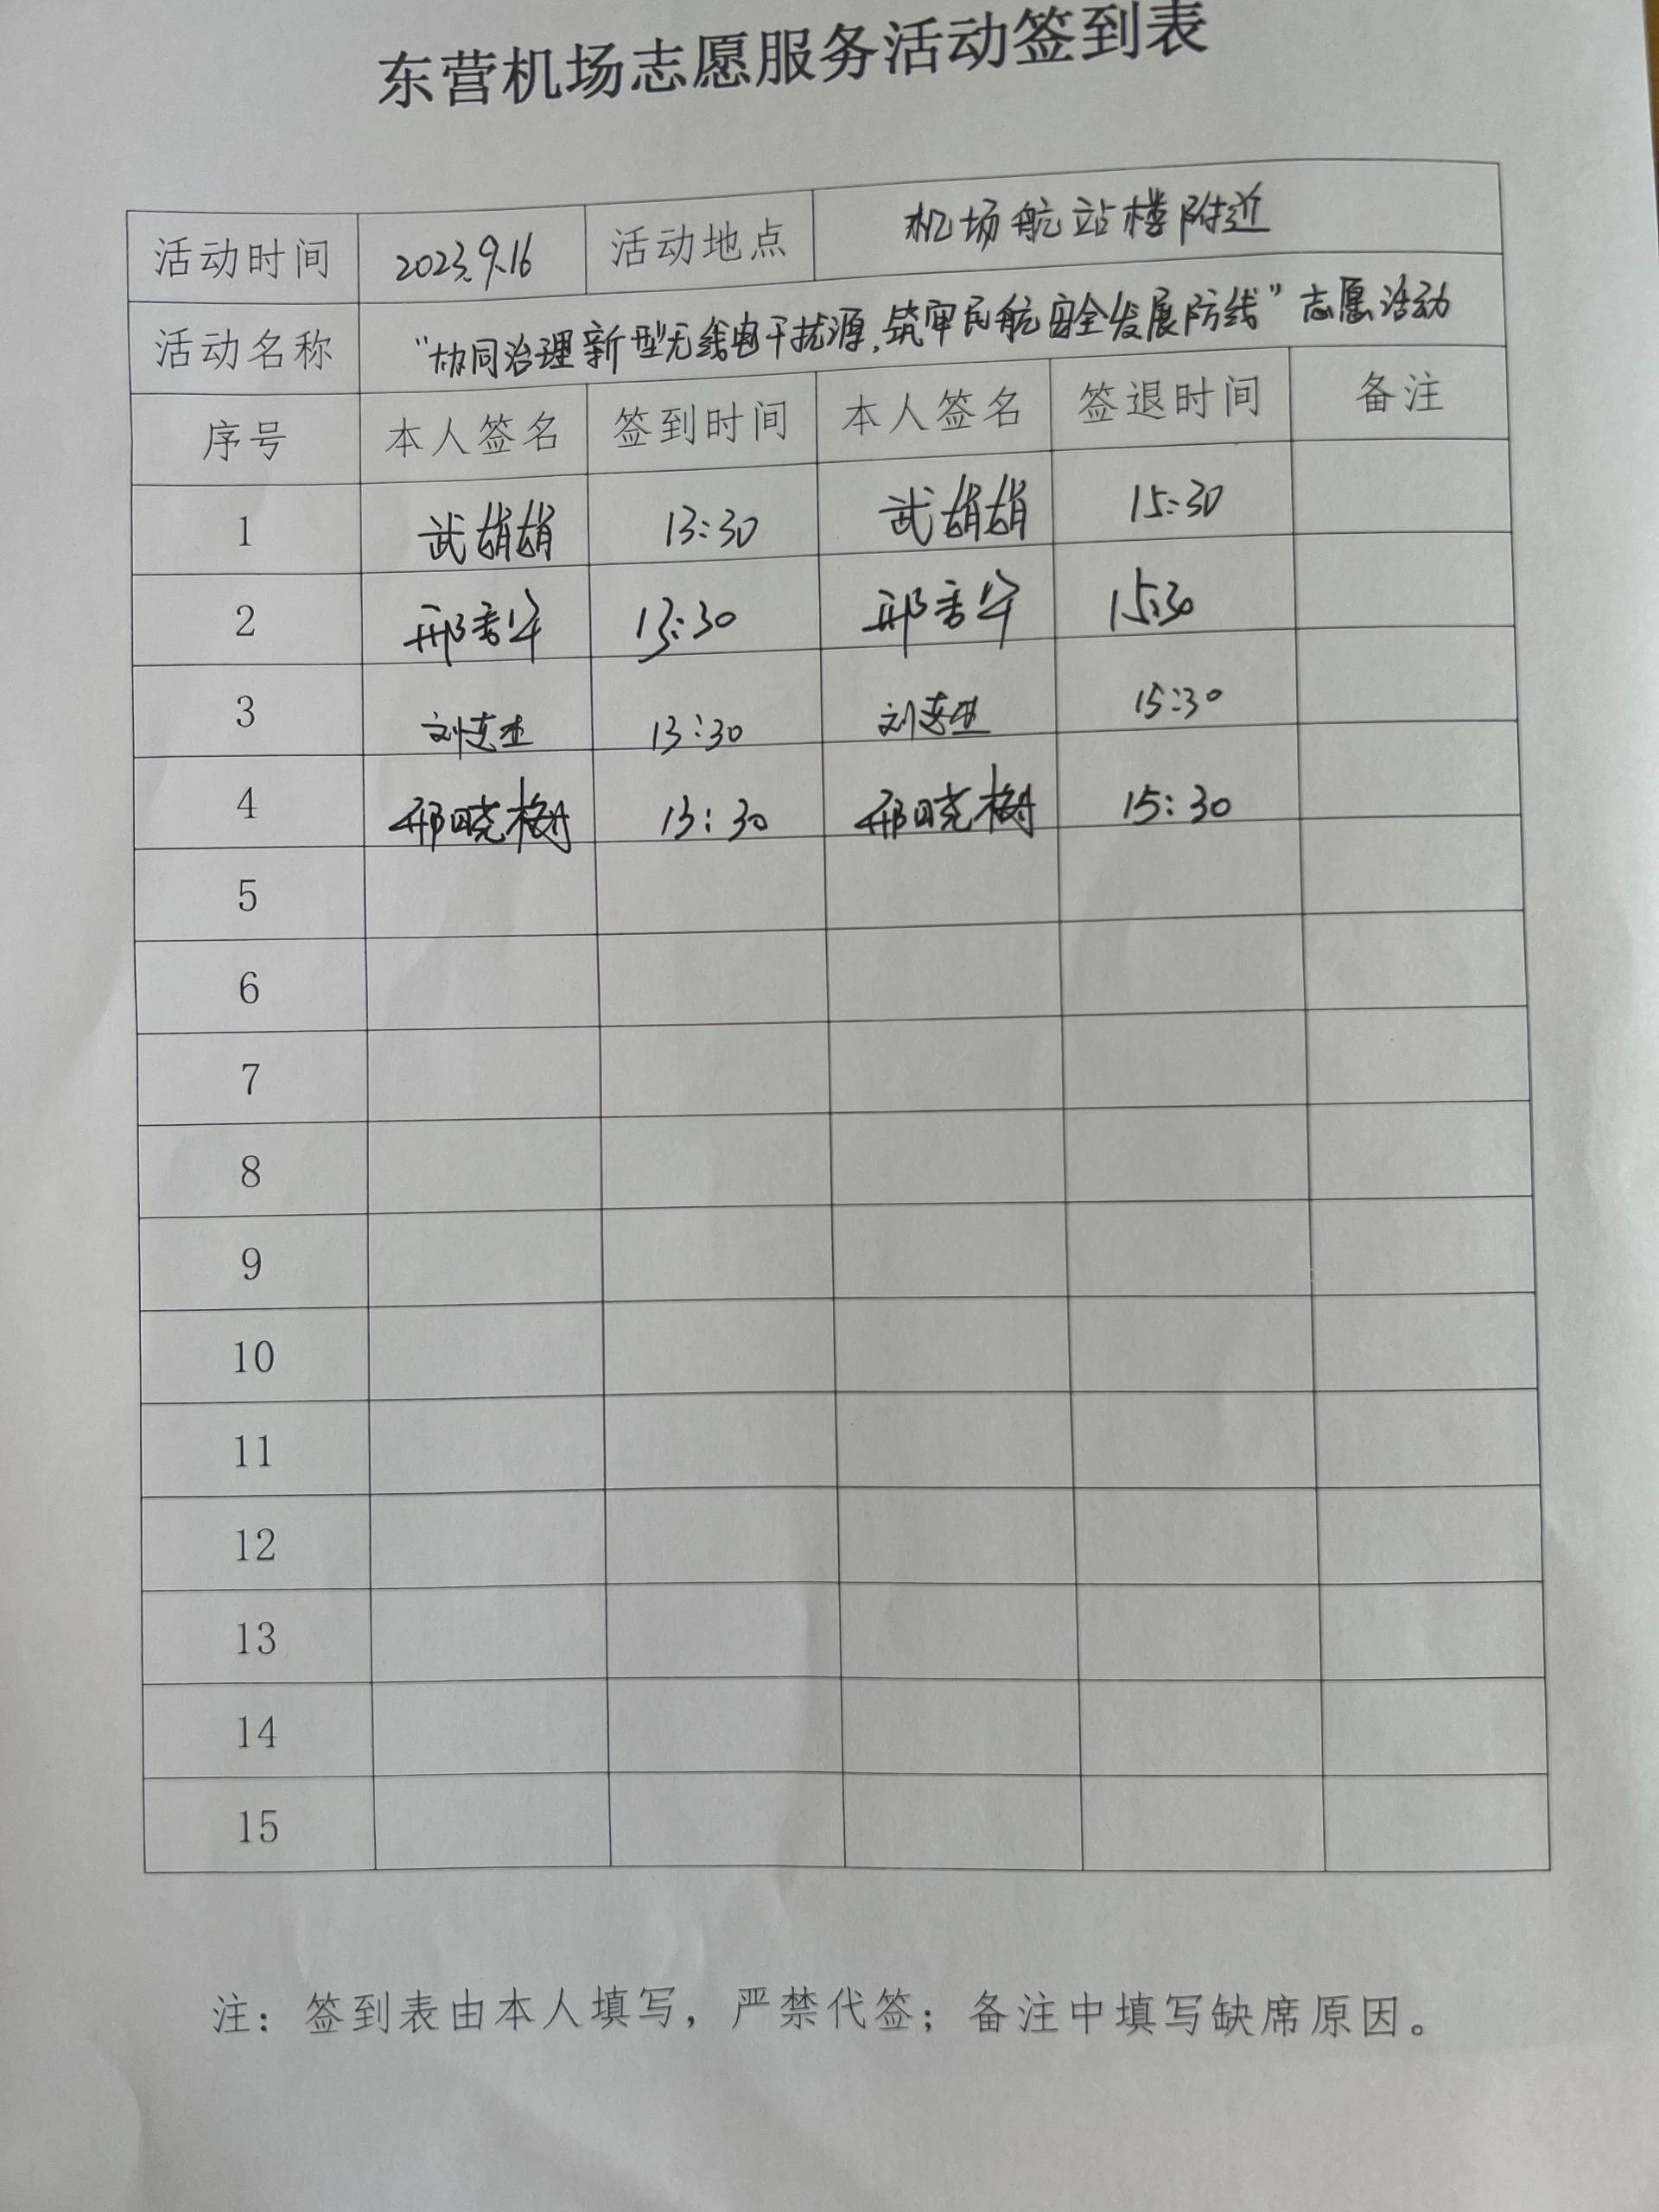 东营机场志愿服务活动签到表
活动时间 2023.9.16 活动地点 机场航站楼附近
活动名称 “协同治理新型无线电干扰源,筑牢民航安全发展防线”志愿活动
序号 本人签名 签到时间 本人签名 签退时间 备注
1 武娟娟 13:30 武娟娟 15:30
2 邢 13:30 邢 15:30
3 刘 13:30 刘 15:30
4 邢晓树 13:30 邢晓树 15:30
5
6
7
8
9
10
11
12
13
14
15
注：签到表由本人填写，严禁代签；备注中填写缺席原因。